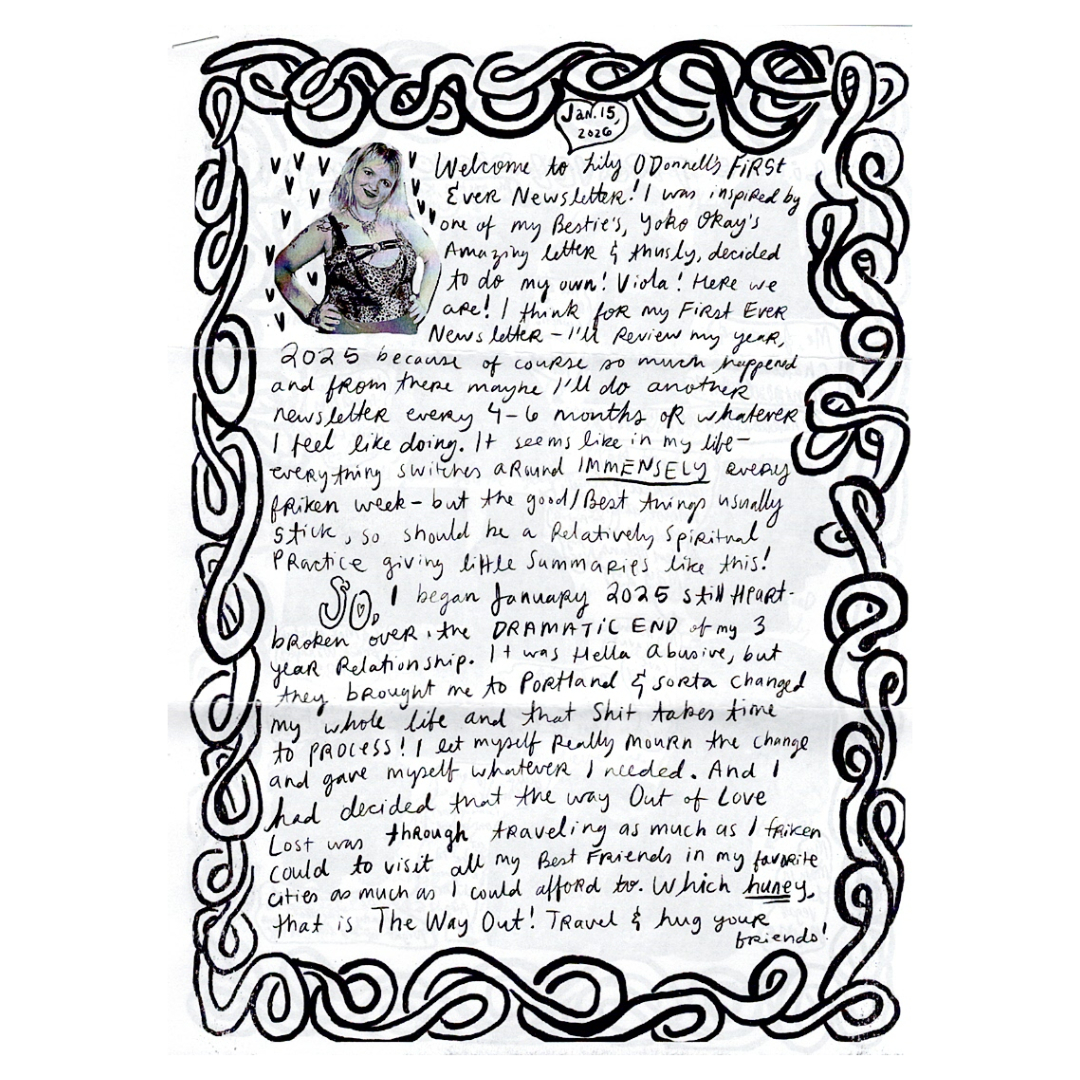 Jan. 15,
2026
Welcome to Lily ODonnell's FiRSt
Ever Newsletter! I was inspired by
one of my Bestie's, Yoko Okay's
Amazing letter & thusly, decided
to do my own! Viola! Here we
are! I think for my First Ever
Newsletter - I'll Review my year,
2025 because of course so much happened
and from there maybe I'll do another
newsletter every 4-6 months or whatever
I feel like doing. It seems like in my life-
everything switches around IMMENSELY every
friken week - but the good/Best things usually
stick, so should be a Relatively Spiritual
Practice giving little Summaries like this!
SO, I began January 2025 still Heart-
broken over the DRAMATIC END of my 3
year Relationship. It was Hella Abusive, but
they brought me to Portland & sorta changed
my whole life and that Shit takes time
to PROCESS! I let myself Really Mourn the change
and gave myself whatever I needed. And I
had decided that the way Out of Love
Lost was through traveling as much as I friken
could to visit all my Best Friends in my favorite
cities as much as I could afford to. Which huney,
that is The Way Out! Travel & hug your
friends!